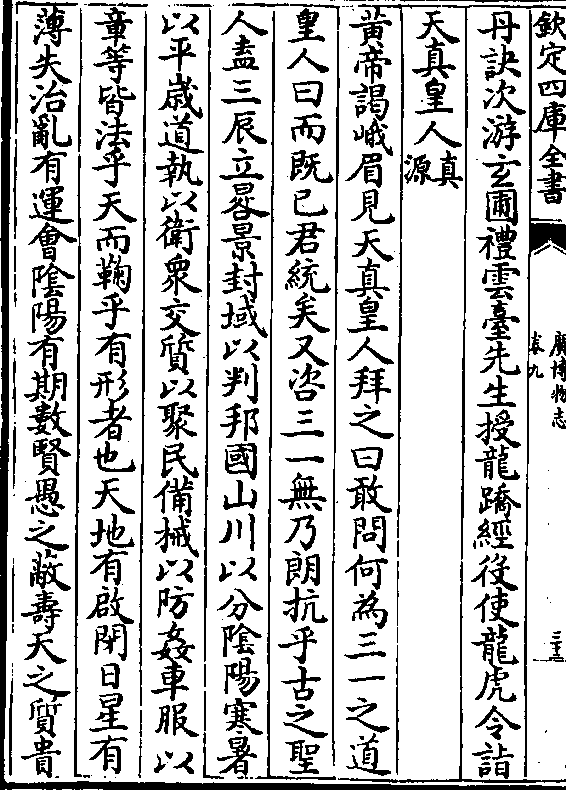 欽定四庫全書
廣博物志
卷九
三十三
丹訣次游玄圃禮雲臺先生授龍蹻經役使龍虎令詣
天真皇人真源
黄帝謁峨眉見天真皇人拜之曰敢問何為三一之道
皇人曰而既已君統矣又咨三一無乃朗抗乎古之聖
人盍三辰立晷景封域以判邦國山川以分陰陽寒暑
以平嵗道執以衛衆交質以聚民備械以防姦車服以
章等皆法乎天而鞠乎有形者也天地有啟閉日星有
薄失治亂有運會隂陽有期數賢愚之蔽壽夭之質貴